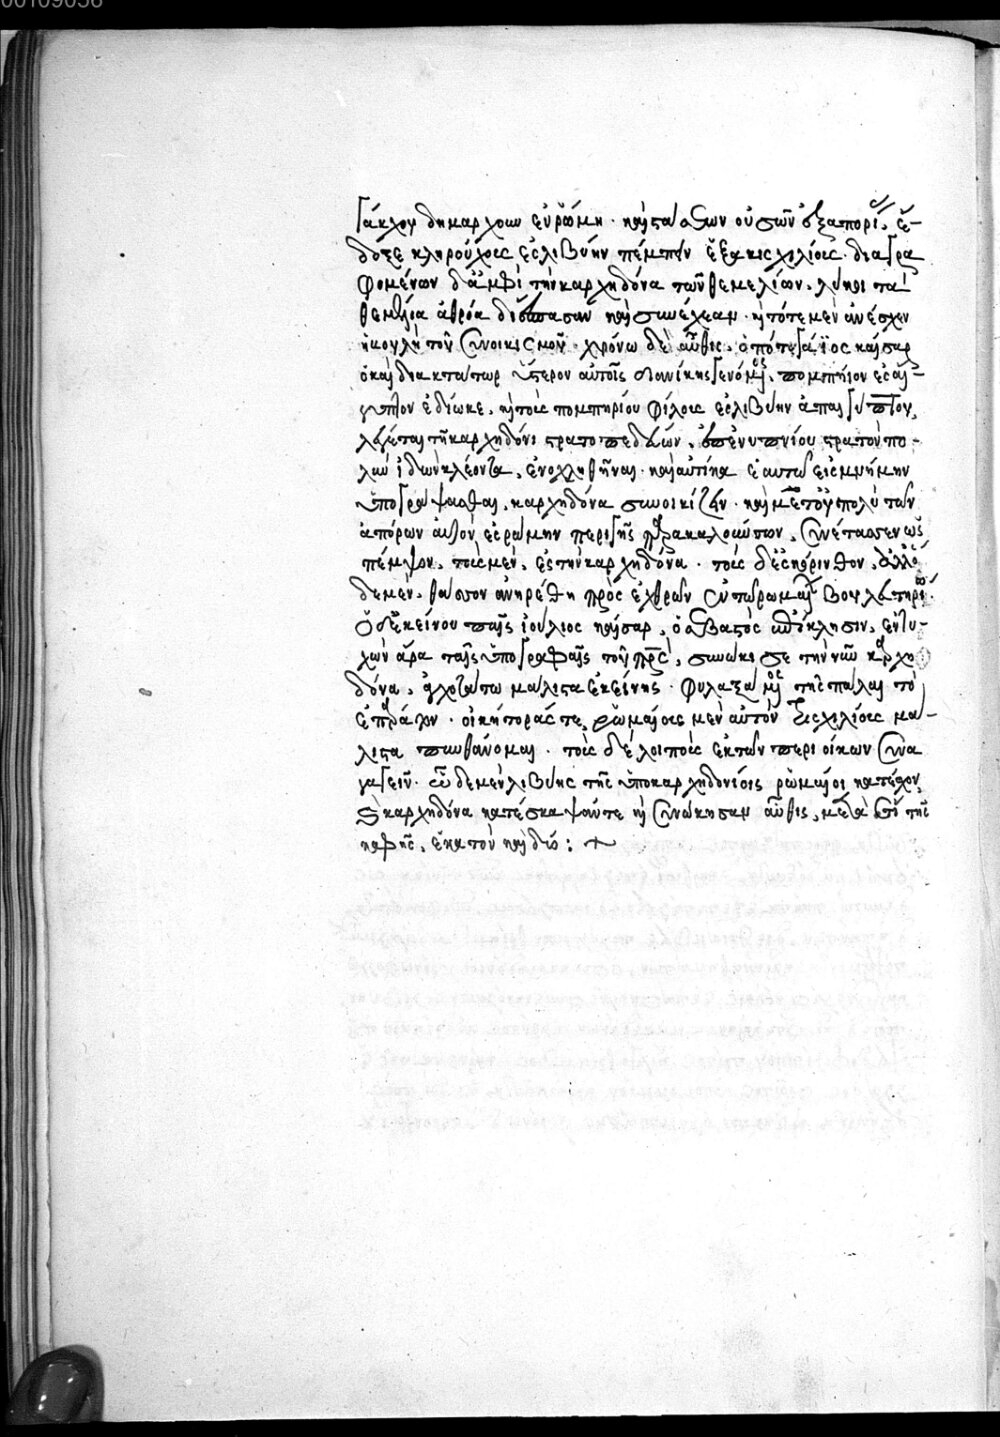 00109056
γάκχου δημαρχοῦν ἐν ῥώμη · καὶ στάσεων οὐσῶν ἐξ ἀπορίας, ἔ-
δοξε κληρούχους ἐς λιβύην πέμπειν ἑξακισχιλίους · διαγρα
φομένων δ' ἀμφὶ τὴν καρχηδόνα τῶν θεμελίων, λύκοι τὰ
θεμέλια ἀθρόα διέσπασαν καὶ συνέχεαν · καὶ τότε μὲν ἀνέσχεν
ἡ βουλὴ τοῦ συνοικισμοῦ · χρόνω δὲ αὖθις, ὁπότε γάϊος καῖσαρ
ὁ καὶ δικτάτωρ ὕστερον αὐτοῖς γενόμενος, πομπήϊον ἐς αἴ-
γυπτον ἐδίωκε, καὶ τοὺς πομπηρίου φίλους ἐς λιβύην ἀπ' αἰγύπτου,
λέγεται τῆ καρχηδόνι στρατοπεδεύων, ὑπ' ἐνυπνίου στρατὸν πο-
λὺν ἰδὼν κλέοντα, ἐνοχληθῆναι · καὶ αὐτίκα ἑαυτῶ εἰς μνήμην
ὑπογράψασθαι, καρχηδόνα συνοικίζειν · καὶ μετ' οὐ πολὺ τῶν
ἀπόρων αὐτὸν ἐς ῥώμην περὶ γῆς παρακαλούντων, συνέτασσεν ὡς
πέμψων, τοὺς μὲν, ἐς τὴν καρχηδόνα · τοὺς δὲ ἐς κόρινθον, ἀλλ' ὅ
δε μὲν, θᾶσσον ἀνηρέθη πρὸς ἐχθρῶν ἐν τῶ ῥωμαίων βουλευτηρίω ·
ὁ δ' ἐκείνου παῖς ἰούλιος καῖσαρ, ὁ σεβαστὸς ἐπίκλησιν, ἐντυ-
χὼν ἄρα ταῖς ὑπογραφαῖς τοῦ πατρὸς, συνώκισε τὴν νῦν καρχη
δόνα, ἀγχοτάτω μάλιστα ἐκείνης · φυλαξάμενος τῆς πάλαι τὸ
ἐπάρατον · οἰκήτοράς τε, ῥωμαίους μὲν αὐτὸν τρισχιλίους μά-
λιστα πυνθάνομαι · τοὺς δὲ λοιποὺς ἐκ τῶν περιοίκων συνα
γαγεῖν · ὧδε μὲν λιβύης τῆς ὑπὸ καρχηδονίοις ῥωμαῖοι κατέσχον,
καὶ καρχηδόνα κατέσκαψάν τε καὶ συνώκησαν αὖθις, μετὰ ἔτη τῆς
κατασκαφῆς, ἑκατὸν καὶ δύο :